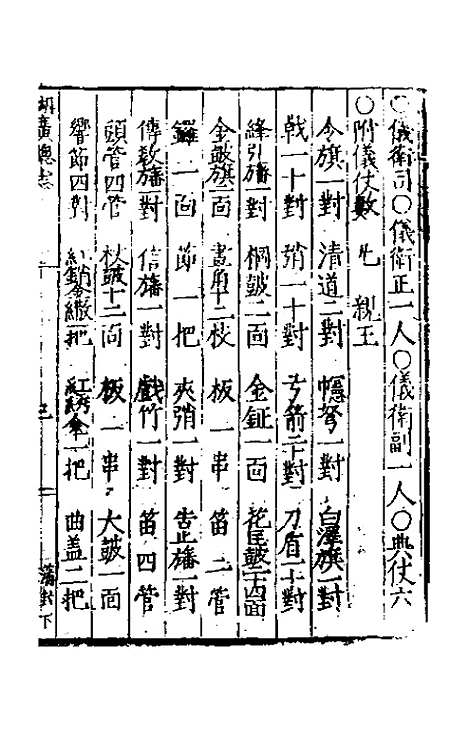 ○儀衛司○儀衛正一人○儀衛副一人○典仗六
○附儀仗數 親王
令旗一對 清道二對 幰弩一對 白澤旗一對
戟一十對 矟一十對 弓箭二十對 刀盾一十對
絳引旛一對 棡鼓二面 金鉦一面 花匡鼓二十四面
金鼓旗一面 畫角十二枝 板一串 笛二管
鑼一面 節一把 夾矟一對 告止旛一對
傳教旛一對 信旛一對 戲竹一對 笛四管
頭管四管 杖鼓十二面 板一串 大鼓一面
響節四對 紅銷金繖一把 紅綉傘一把 曲盖二把
湖廣總志 藩封下